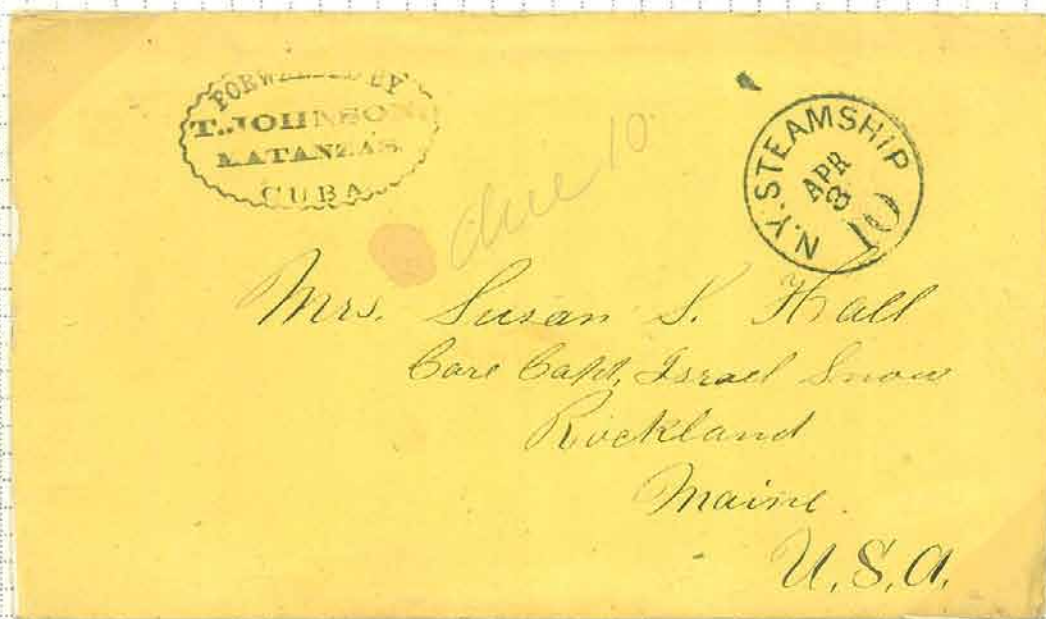 FORWARDED BY
T. JOHNSON
MATANZAS
CUBA
due 10
N.Y. STEAMSHIP
APR
8
10
Mrs. Susan S. Hall
Care Capt, Israel Snow
Rockland
Maine.
U.S.A.